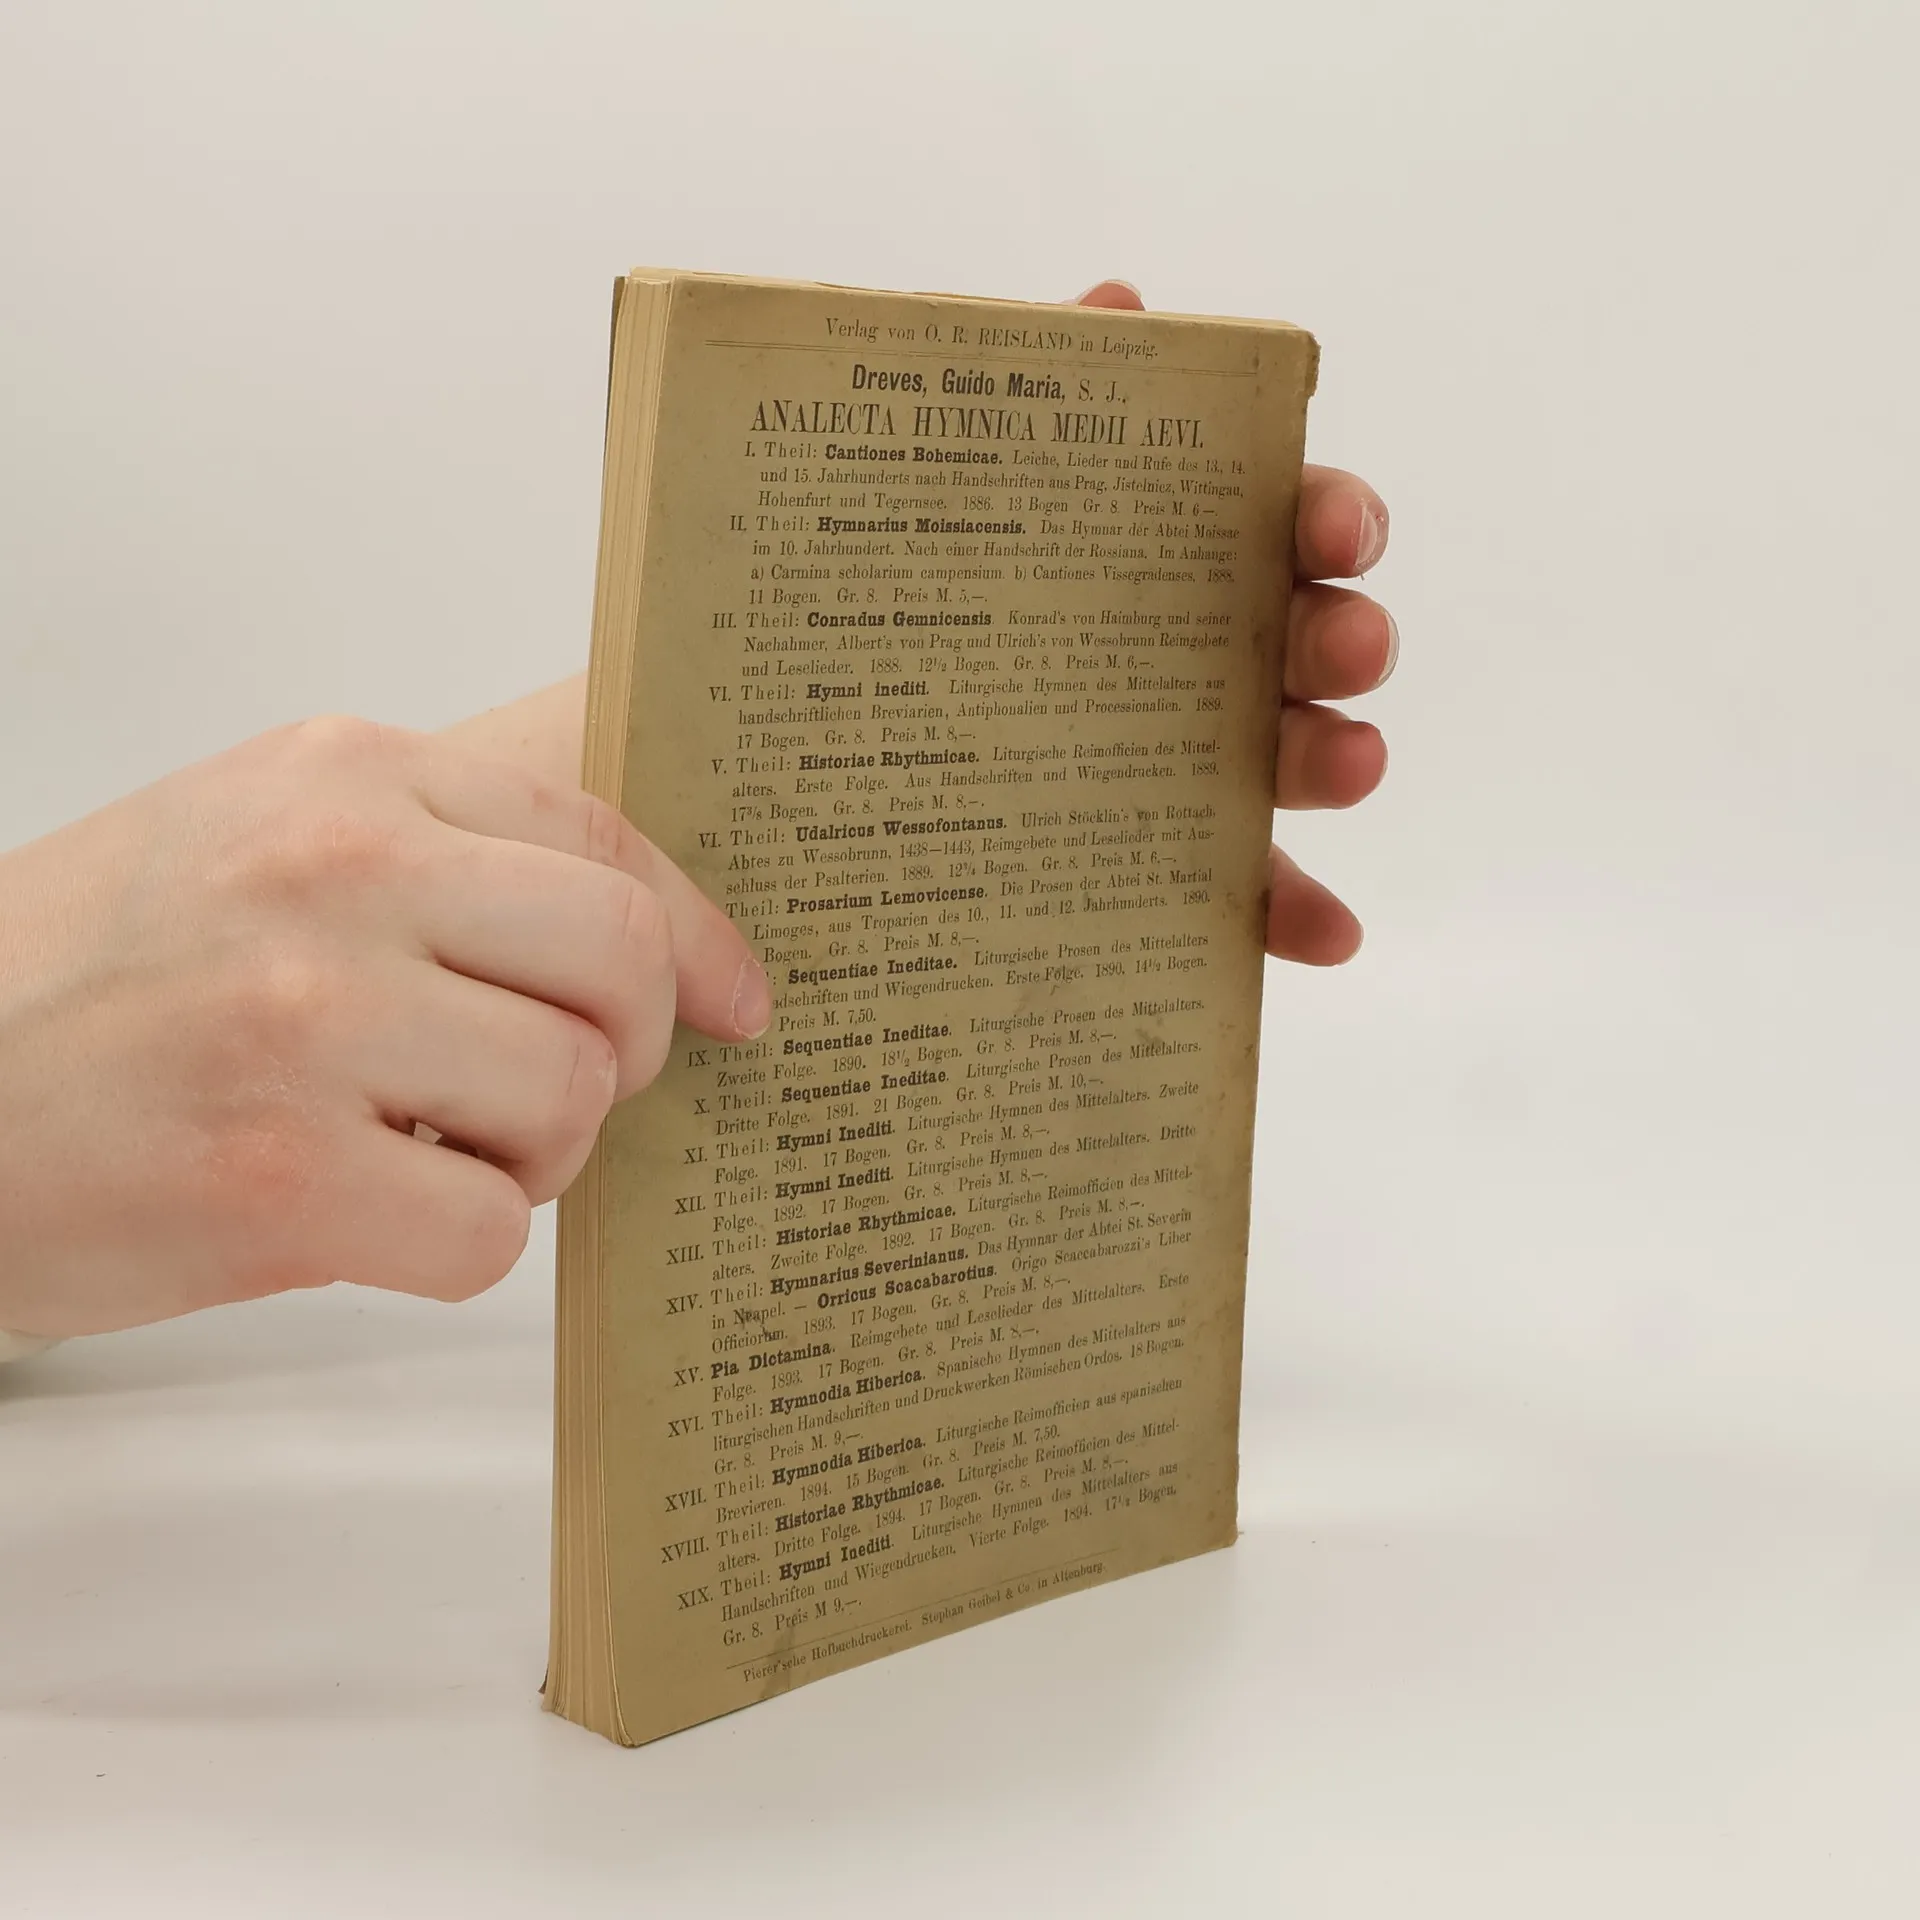 Verlag von O. R. REISLAND in Leipzig.
Dreves, Guido Maria, S. J.,
ANALECTA HYMNICA MEDII AEVI.
I. Theil: Cantiones Bohemicae. Leiche, Lieder und Rufe des 13., 14.
und 15. Jahrhunderts nach Handschriften aus Prag, Jistebnicz, Wittingau,
Hohenfurt und Tegernsee. 1886. 13 Bogen Gr. 8. Preis M. 6.—.
II. Theil: Hymnarius Moissiacensis. Das Hymnar der Abtei Moissac
im 10. Jahrhundert. Nach einer Handschrift der Rossiana. Im Anhange:
a) Carmina scholarium campensium. b) Cantiones Vissegradenses. 1888.
11 Bogen. Gr. 8. Preis M. 5,—.
III. Theil: Conradus Gemnicensis. Konrad's von Haimburg und seiner
Nachahmer, Albert's von Prag und Ulrich's von Wessobrunn Reimgebete
und Leselieder. 1888. 12½ Bogen. Gr. 8. Preis M. 6,—.
VI. Theil: Hymni inediti. Liturgische Hymnen des Mittelalters aus
handschriftlichen Breviarien, Antiphonalien und Processionalien. 1889.
17 Bogen. Gr. 8. Preis M. 8,—.
V. Theil: Historiae Rhythmicae. Liturgische Reimofficien des Mittel-
alters. Erste Folge. Aus Handschriften und Wiegendrucken. 1889.
17⅜ Bogen. Gr. 8. Preis M. 8,—.
VI. Theil: Udalricus Wessofontanus. Ulrich Stöcklin's von Rottach,
Abtes zu Wessobrunn, 1438—1443, Reimgebete und Leselieder mit Aus-
schluss der Psalterien. 1889. Bogen. Gr. 8. Preis M. 6.—.
Theil: Prosarium Lemovicense. Die Prosen der Abtei St. Martial
Limoges, aus Troparien des 10., 11. und 12. Jahrhunderts. 1890.
Bogen. Gr. 8. Preis M. 8,—.
: Sequentiae Ineditae. Liturgische Prosen des Mittelalters
adschriften und Wiegendrucken. Erste Folge. 1890. 14½ Bogen.
Preis M. 7,50.
IX. Theil: Sequentiae Ineditae. Liturgische Prosen des Mittelalters.
Zweite Folge. 1890. 18½ Bogen. Gr. 8. Preis M. 8,—.
X. Theil: Sequentiae Ineditae. Liturgische Prosen des Mittelalters.
Dritte Folge. 1891. 21 Bogen. Gr. 8. Preis M. 10,—.
XI. Theil: Hymni Inediti. Liturgische Hymnen des Mittelalters. Zweite
Folge. 1891. 17 Bogen. Gr. 8. Preis M. 8,—.
XII. Theil: Hymni Inediti. Liturgische Hymnen des Mittelalters. Dritte
Folge. 1892. 17 Bogen. Gr. 8. Preis M. 8,—.
XIII. Theil: Historiae Rhythmicae. Liturgische Reimofficien des Mittel-
alters. Zweite Folge. 1892. 17 Bogen. Gr. 8. Preis M. 8,—.
XIV. Theil: Hymnarius Severinianus. Das Hymnar der Abtei St. Severin
in Neapel. — Orricus Scacabarotius. Origo Scaccabarozzi's Liber
Officiorum. 1893. 17 Bogen. Gr. 8. Preis M. 8,—.
XV. Pia Dictamina. Reimgebete und Leselieder des Mittelalters. Erste
Folge. 1893. 17 Bogen. Gr. 8. Preis M. 8,—.
XVI. Theil: Hymnodia Hiberica. Spanische Hymnen des Mittelalters aus
liturgischen Handschriften und Druckwerken Römischen Ordos. 18 Bogen.
Gr. 8. Preis M. 9,—.
XVII. Theil: Hymnodia Hiberica. Liturgische Reimofficien aus spanischen
Brevieren. 1894. 15 Bogen. Gr. 8. Preis M. 7,50.
XVIII. Theil: Historiae Rhythmicae. Liturgische Reimofficien des Mittel-
alters. Dritte Folge. 1894. 17 Bogen. Gr. 8. Preis M. 8,—.
XIX. Theil: Hymni Inediti. Liturgische Hymnen des Mittelalters aus
Handschriften und Wiegendrucken. Vierte Folge. 1894. Bogen.
Gr. 8. Preis M 9,—.
Pierer'sche Hofbuchdruckerei. Stephan Geibel & Co. in Altenburg.